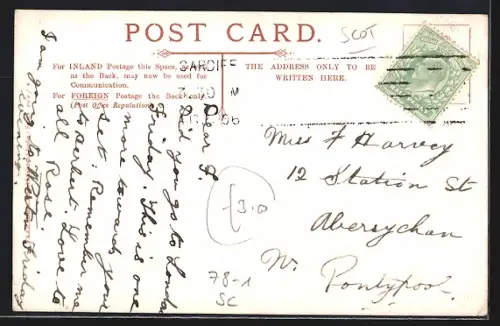 POST CARD.
SCOT
For INLAND Postage this Space, as well
as the Back, may now be used for
Communication.
For FOREIGN Postage the Back only.
(Post Office Regulation).
THE ADDRESS ONLY TO BE
WRITTEN HERE.
CARDIFF
3.30 M
06
Dear F.
Did you go to London
Friday. This is one
more towards your
set. Remember me
to Herbert. Love to
all Rose.
I am going to Weston Friday
Miss F Harvey
12 Station St
Abersychan
Nr. Pontypool.
£3.0
78-1
SC